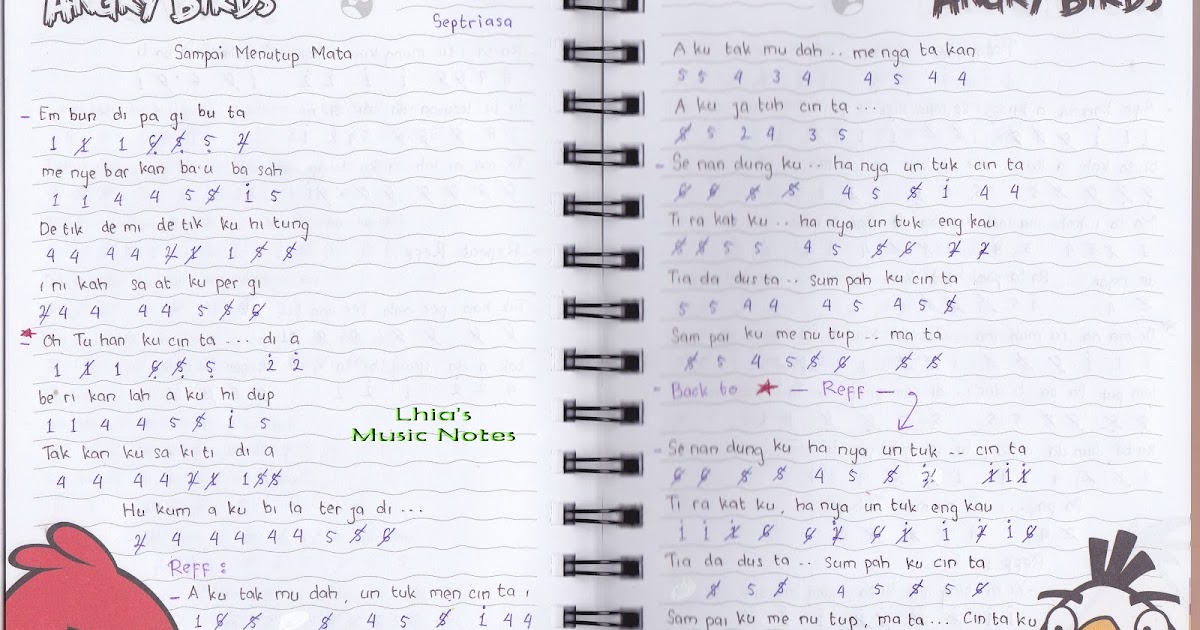 ANGRY BIRDS
Septriasa
Sampai Menutup Mata
- Em bun di pa gi bu ta
1 1̸ 1 6̸̣ 5̸̣ 5̣
me nye bar kan ba'u ba sah
1 1 4 4 5 5̸ i 5
De tik de mi de tik ku hi tung
4 4 4 4 2̸ 1̸ 1 5̸ 5̸
i ni kah sa at ku per gi
2̸ 4 4 4 4 5 5̸ 6̸
★ - Oh Tu han ku cin ta ... di a
1 1̸ 1 6̸̣ 5̸̣ 5̣ 2̇ 2̇
be ri kan lah a ku hi dup
1 1 4 4 5 5̸ i 5
Tak kan ku sa ki ti di a
4 4 4 4 2̸ 1̸ 1 5̸ 5̸
Hu kum a ku bi la ter ja di ...
2̸ 4 4 4 4 4 5 5̸ 6̸
Reff :
- A ku tak mu dah, un tuk men cin ta i
1 6̸ 5̸ 5̸ 4 5 5̸ i 4 4
Lhia's
Music Notes
ANGRY BIRDS
A ku tak mu dah .. me nga ta kan
5 5 4 3 4 4 5 4 4
A ku ja tuh cin ta ...
5̸ 5 2 4 3 5
- Se nan dung ku .. ha nya un tuk cin ta
6̸ 6̸ 5̸ 5̸ 4 5 5̸ i 4 4
Ti ra kat ku .. ha nya un tuk eng kau
5̸ 5̸ 5 5 4 5 5̸ 6̸ 2̸ 2̸
Tia da dus ta .. sum pah ku cin ta
5 5 4 4 4 5 4 5 5̸
Sam pai ku me nu tup .. ma ta
5̸ 5 4 5 5̸ 6̸ 5̸ 5̸
- Back to ★ - Reff -
- Se nan dung ku ha nya un tuk .. cin ta
6̸ 6̸ 5̸ 5̸ 4 5 5̸
Ti ra kat ku, ha nya un tuk eng kau
Tia da dus ta .. sum pah ku cin ta
5̸ 5 5̸ 4 5 5̸ 5 6̸
Sam pai ku me nu tup, ma ta ... Cin ta ku